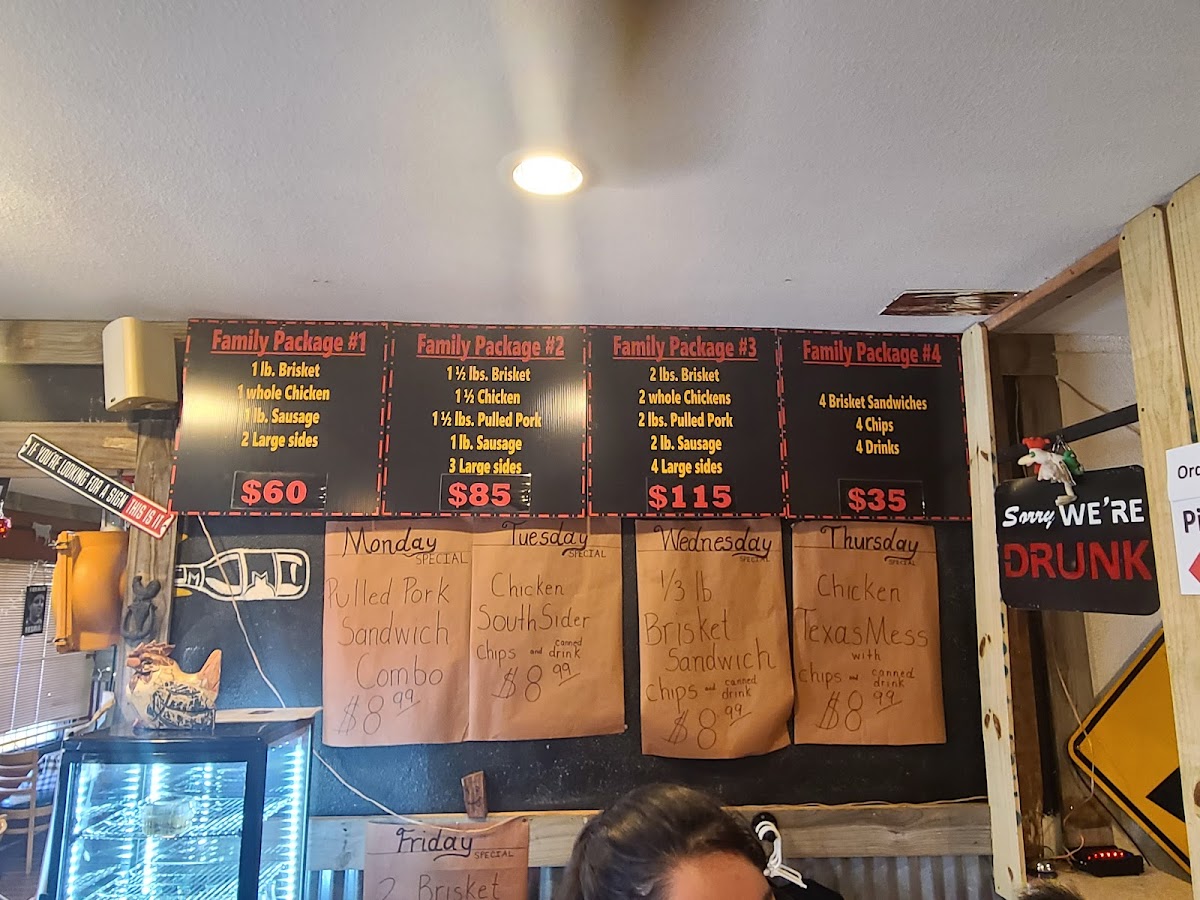 Family Package #1
1 lb. Brisket
1 whole Chicken
1 lb. Sausage
2 Large sides
$60
Family Package #2
1 ½ lbs. Brisket
1 ½ Chicken
1 ½ lbs. Pulled Pork
1 lb. Sausage
3 Large sides
$85
Family Package #3
2 lbs. Brisket
2 whole Chickens
2 lbs. Pulled Pork
2 lb. Sausage
4 Large sides
$115
Family Package #4
4 Brisket Sandwiches
4 Chips
4 Drinks
$35
IF YOU'RE LOOKING FOR A SIGN THIS IS IT
Monday
SPECIAL
Pulled Pork
Sandwich
Combo
$8.99
Tuesday
SPECIAL
Chicken
SouthSider
chips and canned drink
$8.99
Wednesday
SPECIAL
1/3 lb
Brisket
Sandwich
chips and canned drink
$8.99
Thursday
SPECIAL
Chicken
Texas Mess
with
chips and canned drink
$8.99
Friday
SPECIAL
2 Brisket
Sorry WE'RE
DRUNK